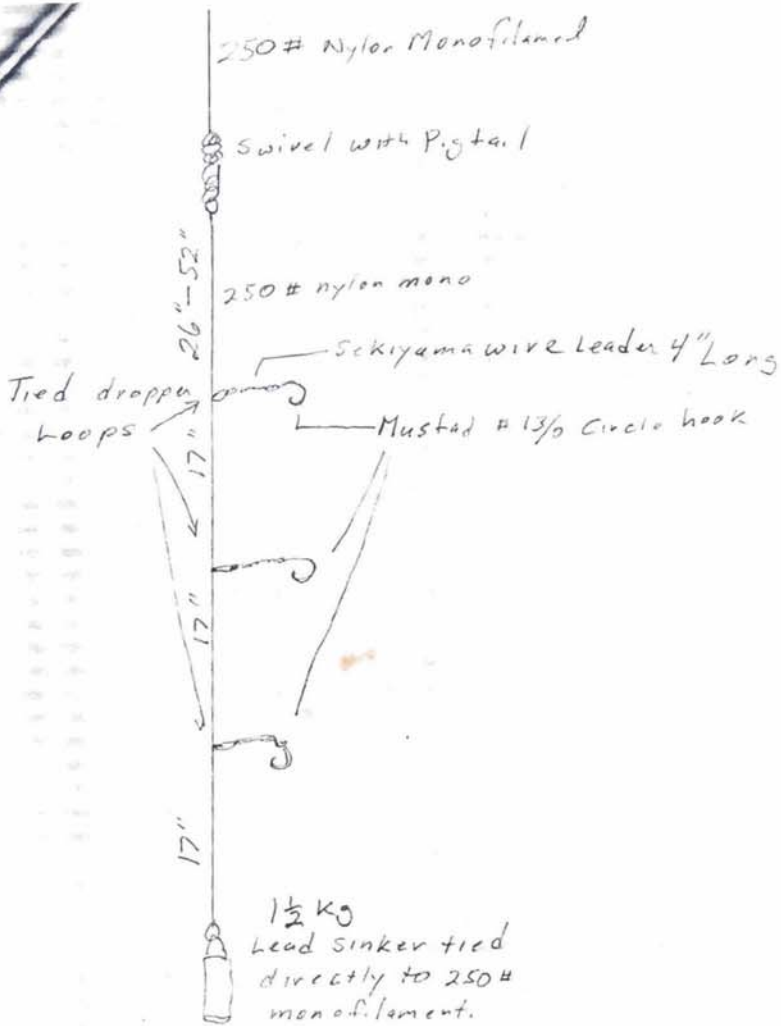 250# Nylon Monofilamed
Swivel with Pigtail
26"-52"
250# nylon mono
Sekiyama wire Leader 4" Long
Tied dropper
Loops
Mustad #13/0 Circle hook
17"
17"
17"
1½ Kg
Lead Sinker tied
directly to 250#
monofilament.